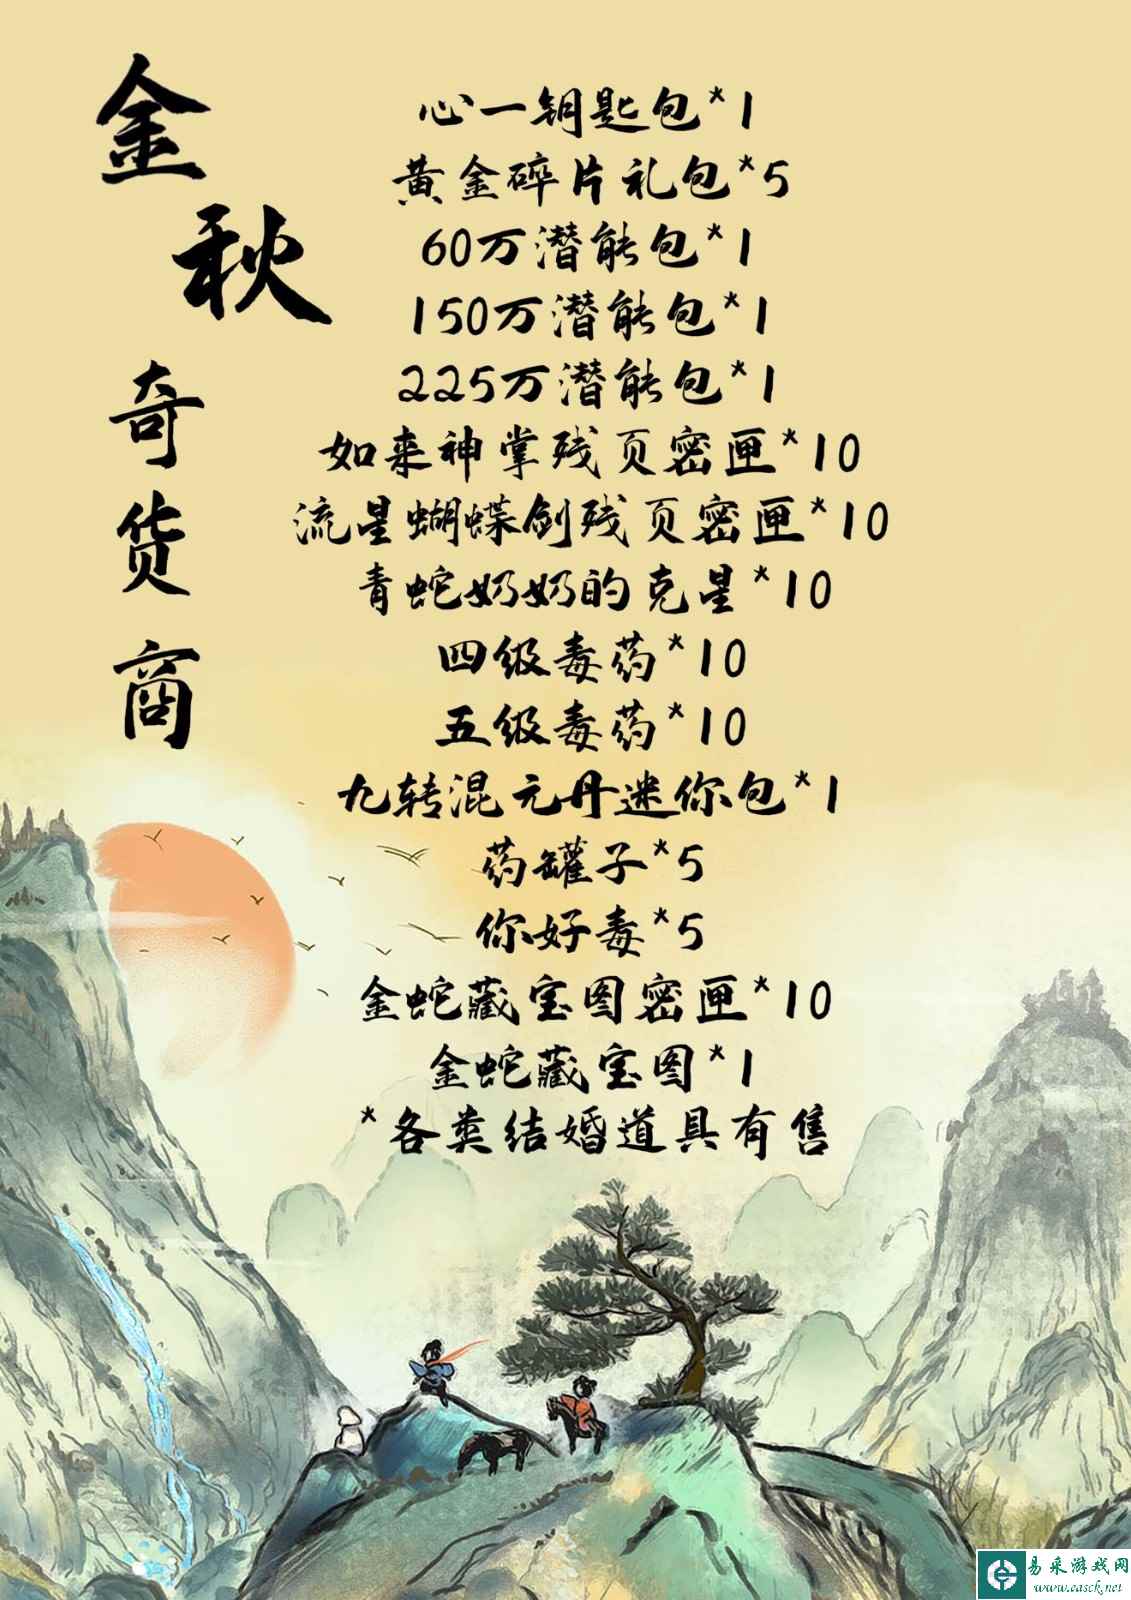 金秋
奇货商
心一钥匙包*1
黄金碎片礼包*5
60万潜能包*1
150万潜能包*1
225万潜能包*1
如来神掌残页密匣*10
流星蝴蝶剑残页密匣*10
青蛇奶奶的克星*10
四级毒药*10
五级毒药*10
九转混元丹迷你包*1
药罐子*5
你好毒*5
金蛇藏宝图密匣*10
金蛇藏宝图*1
*各类结婚道具有售
易采游戏网
www.easck.net